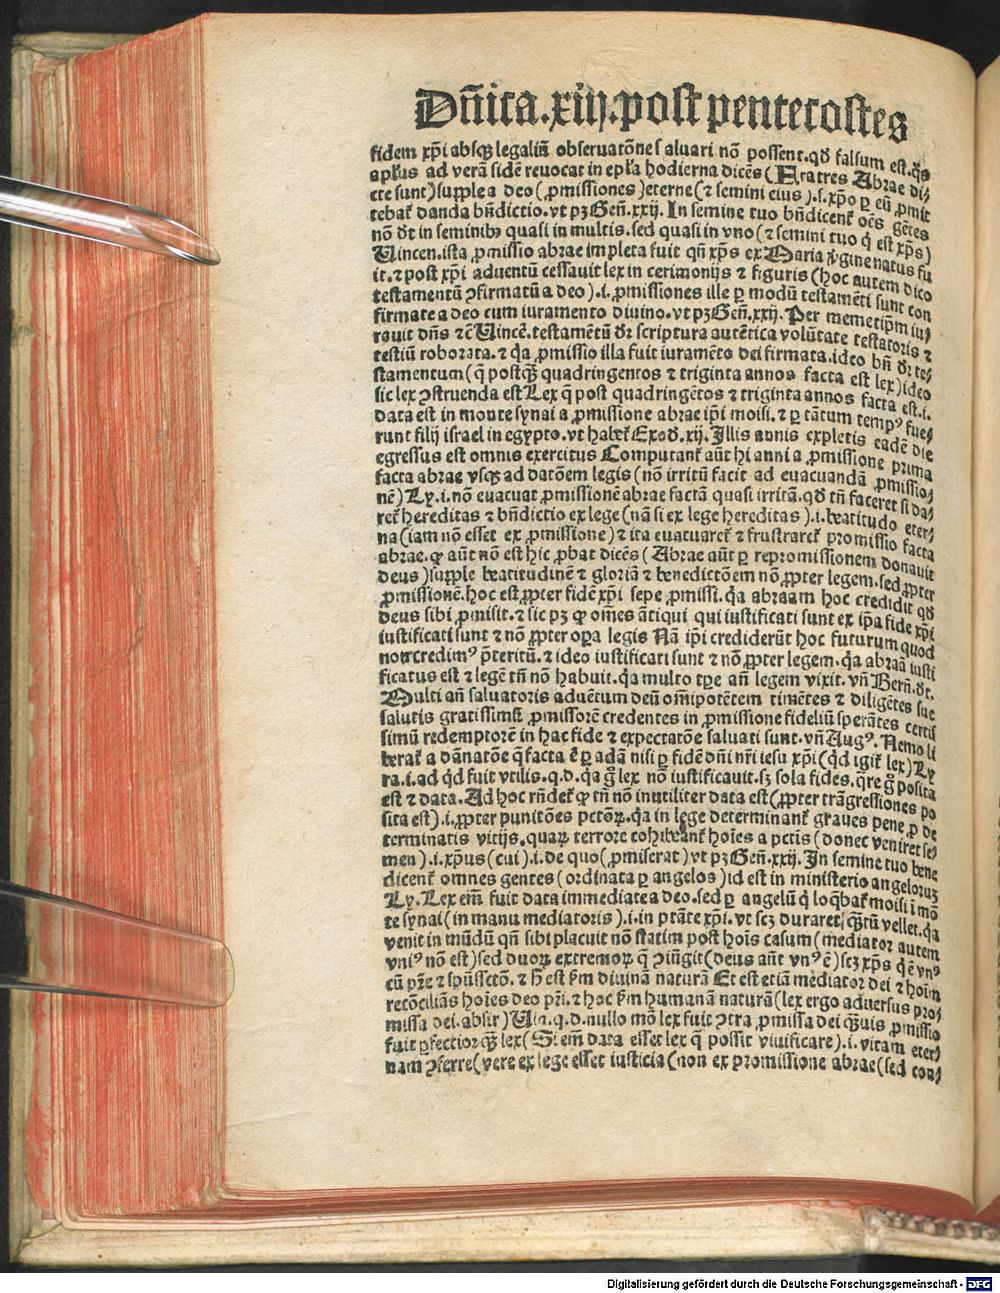 Dñica.xiij.post pentecostes
fidem xp̄i absqȝ legaliū obseruatōne saluari nō possent.qđ falsum est.qȝ
apłus ad verā fidē reuocat in epła hodierna dicēs (Fratres Abrae di⸗
cte sunt) supple a deo (ꝓmissiones) eterne (⁊ semini eius).s.xp̄o ꝑ eū ꝓmit
tebat᷑ danda bn̄dictio.vt pȝ Gen̄.xxij. In semine tuo bn̄dicent᷑ oēs gētes
nō đt in seminibꝰ quasi in multis.sed quasi in vno (⁊ semini tuo q̇ est xp̄s)
Uincen.ista ꝓmissio abrae impleta fuit qn̄ xp̄s ex Maria v̓gine natus fu
it.⁊ post xp̄i aduentū cessauit lex in cerimonijs ⁊ figuris (hoc autem dico
testamentū ↄfirmatū a deo).i.ꝓmissiones ille ꝑ modū testamēti sunt con
firmate a deo cum iuramento diuino.vt pȝ Gen̄.xxij. Per memetip̄m iu⸗
rauit dn̄s ⁊c̄ Uincē.testamētū đr scriptura autētica volūtate testatoris ⁊
testiū roborata.⁊ q̇a ꝓmissio illa fuit iuramēto dei firmata.ideo bn̄ đr te⸗
stamentum (q̄ postqȝ̄ quadringentos ⁊ triginta annos facta est lex) ideo
sic lex ↄstruenda est Lex q̄ post quadringētos ⁊ triginta annos facta est.i.
data est in monte synai a ꝓmissione abrae ip̄i moisi.⁊ ꝑ tātum tempꝰ fue⸗
runt filij israel in egypto.vt habet᷑ Exođ.xij. Illis annis expletis eadē die
egressus est omnis exercitus Computant᷑ aūt hi anni a ꝓmissione prima
facta abrae vsqȝ ad datōem legis (nō irritū facit ad euacuandā ꝓmissio⸗
nē) Ly.i.nō euacuat ꝓmissionē abrae factā quasi irritā.qđ tn̄ faceret si da⸗
ret᷑ hereditas ⁊ bn̄dictio ex lege (nā si ex lege hereditas).i.beatitudo eter⸗
na (iam nō esset ex ꝓmissione) ⁊ ita euacuaret᷑ ⁊ frustraret᷑ promissio facta
abrae.ꝙ aūt nō est hic ꝓbat dicēs (Abrae aūt ꝑ repromissionem donauit
deus) supple beatitudinē ⁊ gloriā ⁊ benedictōem nō ꝓpter legem.sed ꝓpter
ꝓmissionē.hoc est ꝓpter fidē xp̄i sepe ꝓmissi.q̇a abraam hoc credidit qđ
deus sibi ꝓmisit.⁊ sic pȝ ꝙ om̄es ātiqui qui iustificati sunt ex ip̄a fide xp̄i
iustificati sunt ⁊ nō ꝓpter oꝑa legis Nā ip̄i crediderūt hoc futurum quod
nos credimꝰ p̄teritū.⁊ ideo iustificati sunt ⁊ nō ꝓpter legem.q̇a abraā iusti
ficatus est ⁊ legē tn̄ nō habuit.q̇a multo tꝑe an̄ legem vixit.vn̄ Bern̄.đt.
Multi an̄ saluatoris aduētum deū om̄ipotētem timētes ⁊ diligētes sue
salutis gratissimū ꝓmissorē credentes in ꝓmissione fideliū sperātes certis
simū redemptorē in hac fide ⁊ expectatōe saluati sunt.vn̄ Augꝰ. Nemo li
berat᷑ a dānatōe q̄ facta ē ꝑ adā nisi ꝑ fidē dn̄i nr̄i iesu xp̄i (q̇d igit᷑ lex) Ly
ra.i.ad q̇d fuit vtilis.q.d.q̇a gͦ lex nō iustificauit.sȝ sola fides.q̄re gͦ posita
est ⁊ data. Ad hoc rn̄det᷑ ꝙ tn̄ nō inutiliter data est (ꝓpter trāgressiones po
sita est).i.ꝓpter punitōes pctōꝝ.q̇a in lege determinant᷑ graues pene ꝓ de
terminatis vitijs.quaꝝ terrore cohibeant᷑ hoīes a pctīs (donec veniret se⸗
men).i.xp̄us (cui).i.de quo (ꝓmiserat) vt pȝ Gen̄.xxij. In semine tuo bene
dicent᷑ omnes gentes (ordinata ꝑ angelos) id est in ministerio angeloruȝ
Ly. Lex em̄ fuit data immediate a deo.sed ꝑ angelū q̇ loq̄bat᷑ moisi ī mō
te synai (in manu mediatoris).i.in ptāte xp̄i.vt scȝ duraret q̄ȝtū vellet.q̇a
venit in mūdū qn̄ sibi placuit nō statim post hoīs casum (mediator autem
vniꝰ nō est) sed duoꝝ extremoꝝ q̇ ↄiūgit (deus aūt vnꝰ ē) scȝ xp̄s q̇ ē vnꝰ
cū pr̄e ⁊ spūssctō.⁊ h̄ est ẜm diuinā naturā Et est etiā mediator dei ⁊ hoīm
recōciliās hoīes deo pr̄i.⁊ hoc ẜm humanā naturā (lex ergo aduersus pro⸗
missa dei.absit) Uin.q.d.nullo mō lex fuit ↄtra ꝓmissa dei q̄ȝuis ꝓmissio
fuit ꝑfectior q̄ȝ lex (Si em̄ data esset lex q̄ possit viuificare).i.vitam eter⸗
nam ↄferre (vere ex lege esset iusticia (non ex promissione abrae (sed con⸗
Digitalisierung gefördert durch die Deutsche Forschungsgemeinschaft - DFG